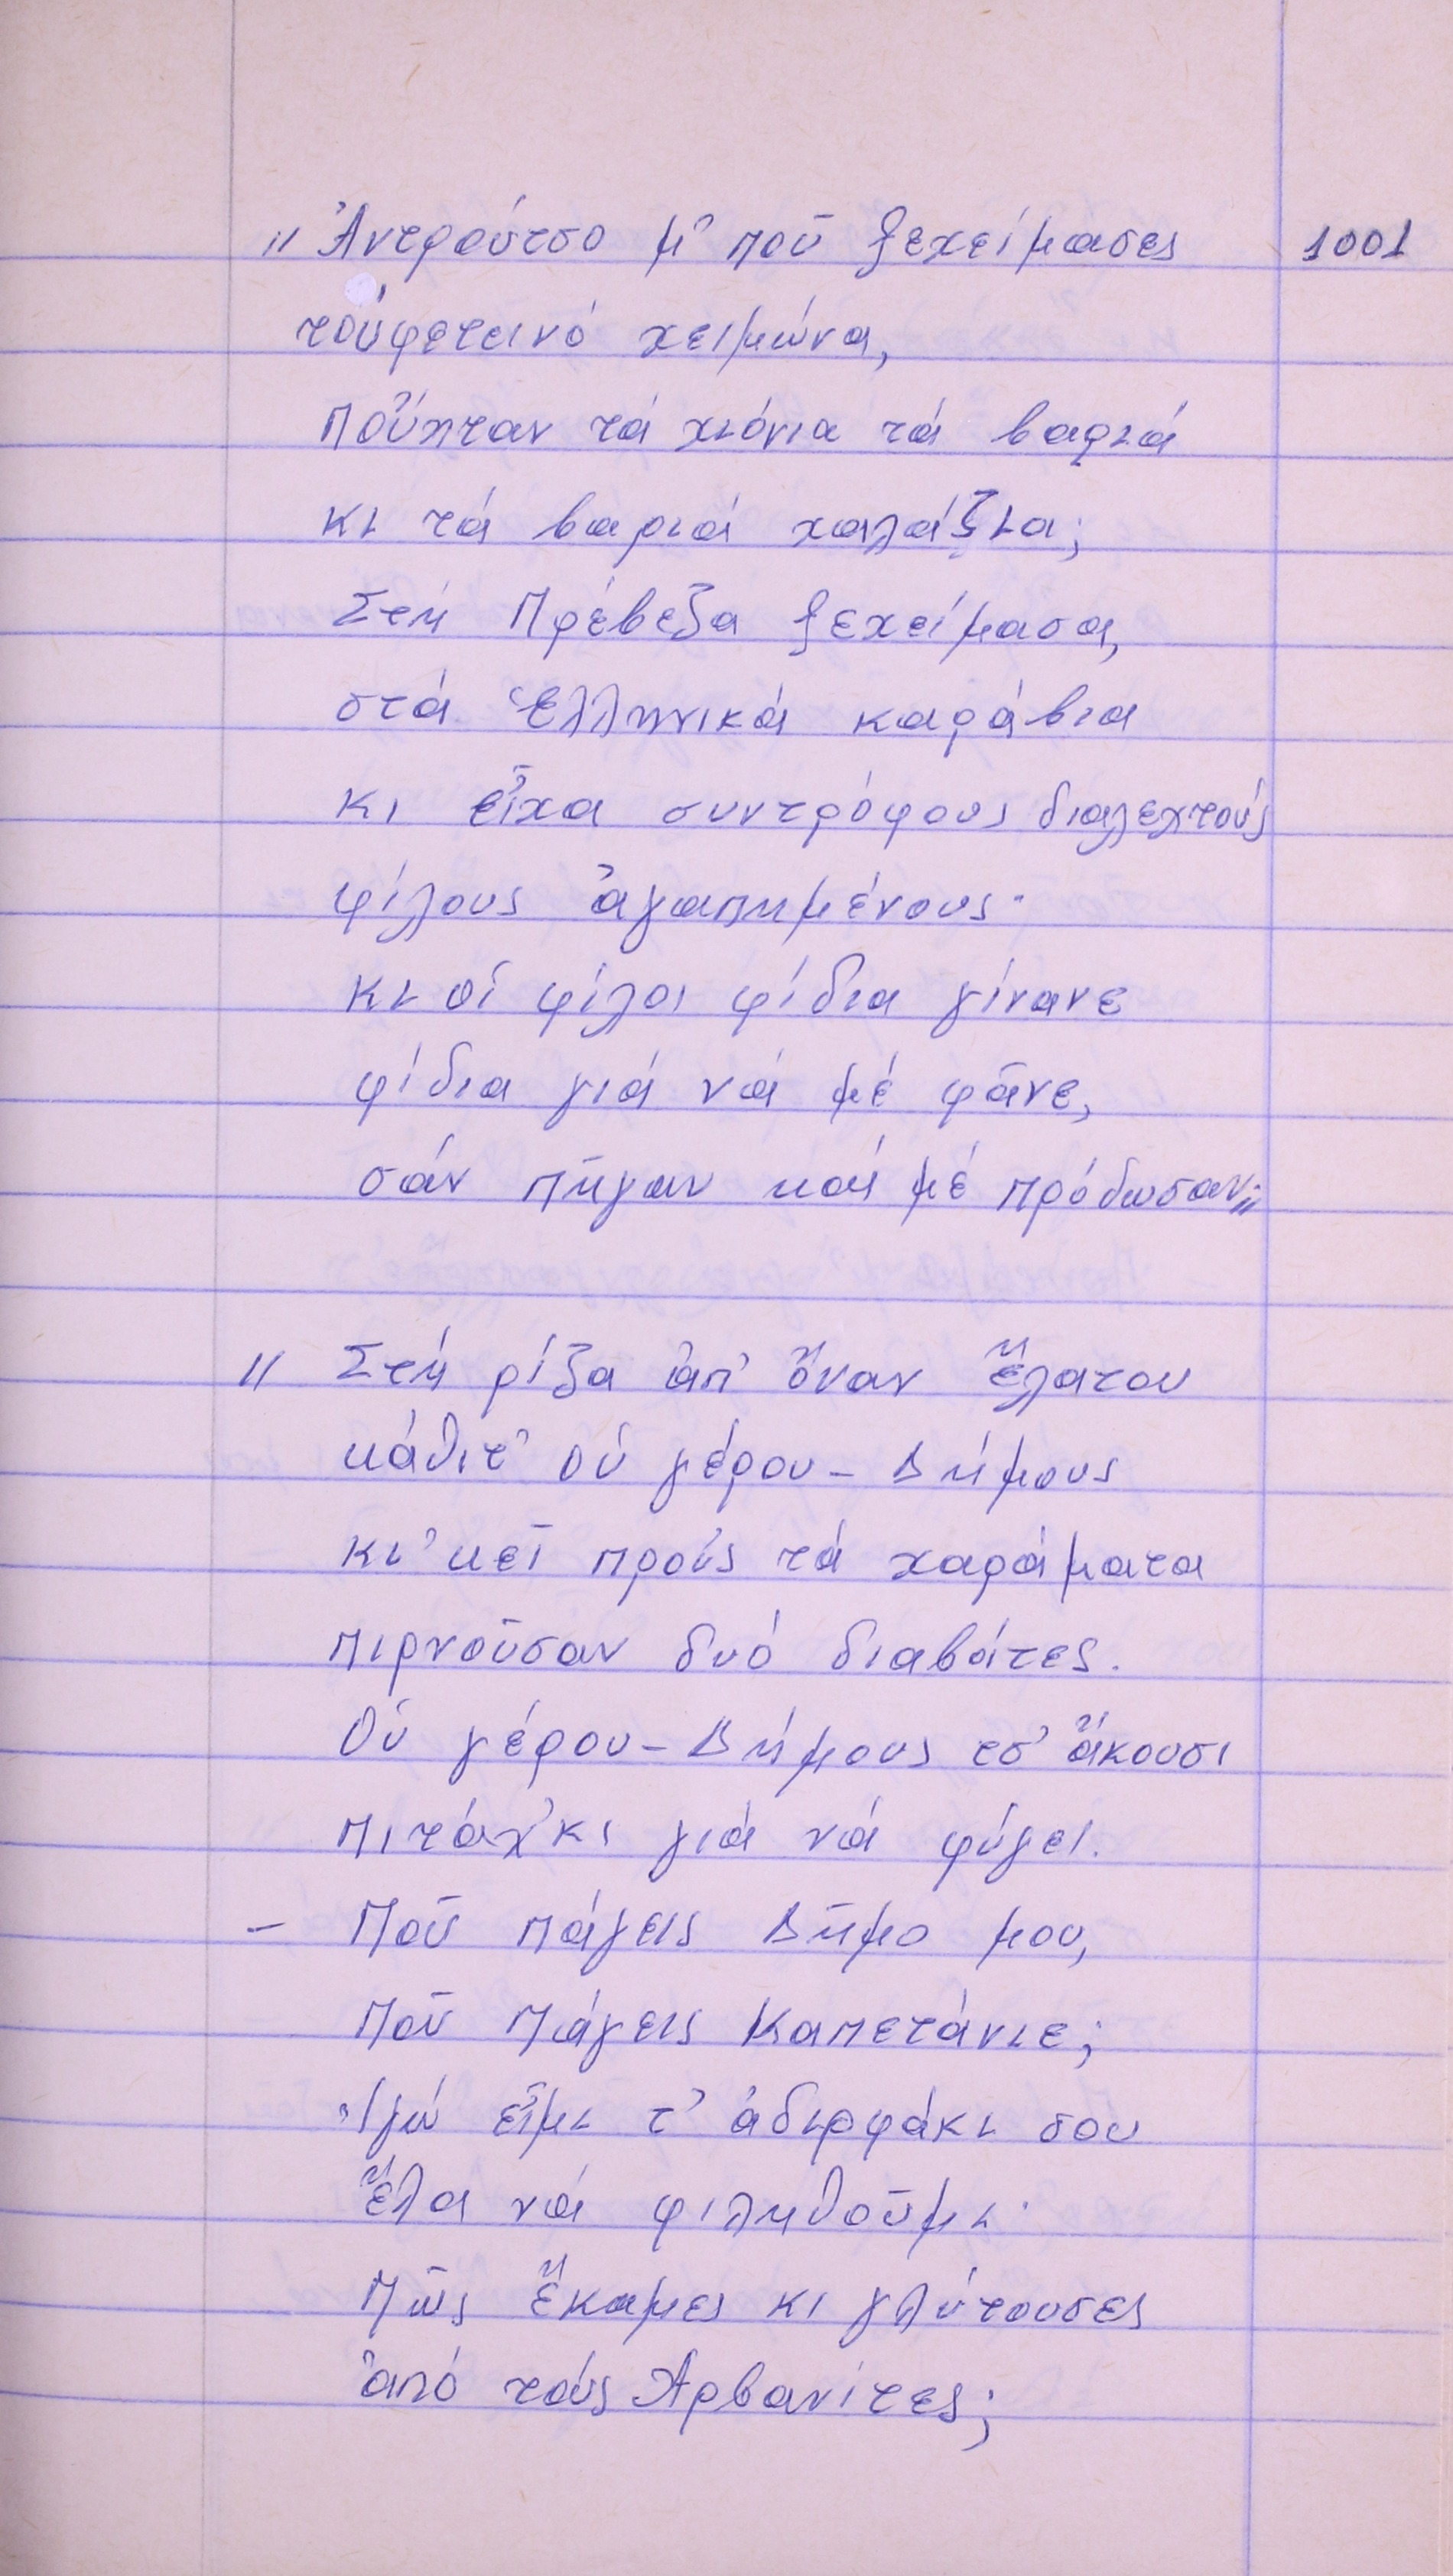 " Ἀντροῦτσο μ' ποῦ ξεχείμασες 1001
τοὐφετεινό χειμώνα,
ποὖηταν τά χιόνια τά βαριά
κι τά βαριά χαλάζια;
Στή Πρέβεζα ξεχείμασα,
στά Ἑλληνικά καράβια
κι εἶχα συντρόφους διαλεχτούς
φίλους ἀγαπημένους·
κι οἱ φίλοι φίδια γίνανε
φίδια γιά νά μέ φᾶνε,
σάν πῆγαν καί μέ πρόδωσαν; "
" Στή ρίζα ἀπ' ὅναν ἔλατου
κάθιτ' οὑ γέρου - Δήμους
κι' κεῖ πρoύς τά χαράματα
πιρνοῦσαν δυό διαβάτες.
Οὑ γέρου - Δήμους τσ' ἄκουσι
πιτάχ'κι γιά νά φύγει.
- Ποῦ πάγεις Δῆμο μου,
ποῦ πάγεις Καπετάνιε;
Ἰγώ εἶμι τ' ἀδιρφάκι σου
ἔλα νά φιληθοῦμι·
Πῶς ἔκαμες κι γλύτουσες
ἀπό τούς Ἀρβανίτες;